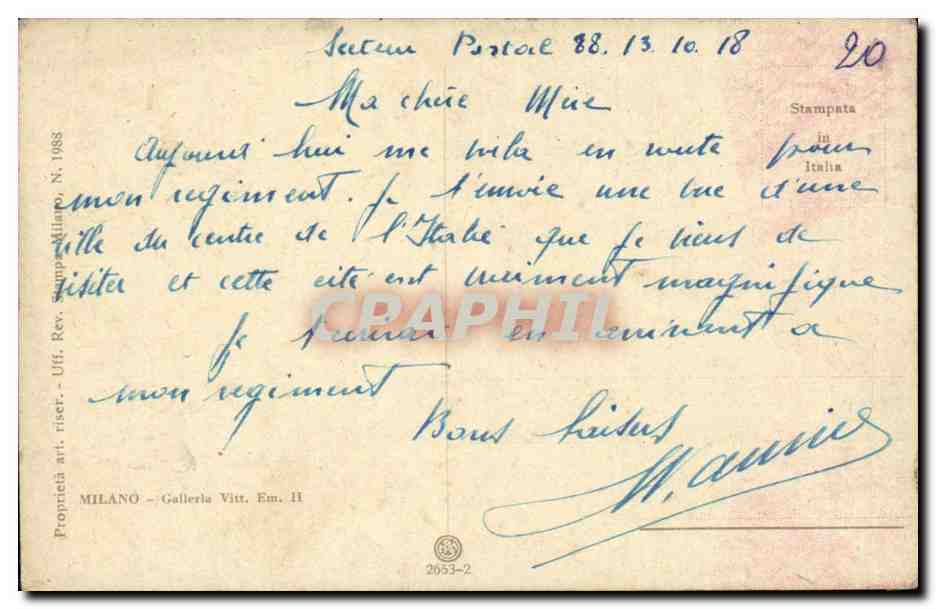 Secteur Postal 88. 13.10.18
20
Ma chère Mère
Aujourd hui me voila en route pour
mon regiment. Je t'envoie une vue d'une
ville du centre de l'Italie que je viens de
visiter et cette cité est vraiment magnifique
Je t'ecrirai en arrivant a
mon regiment
Bons baisers
Stampata
in
Italia
Proprietà art. riser. - Uff. Rev. Stampa Milano, N. 1988
CPARAMA
MILANO - Galleria Vitt. Em. II
2653-2